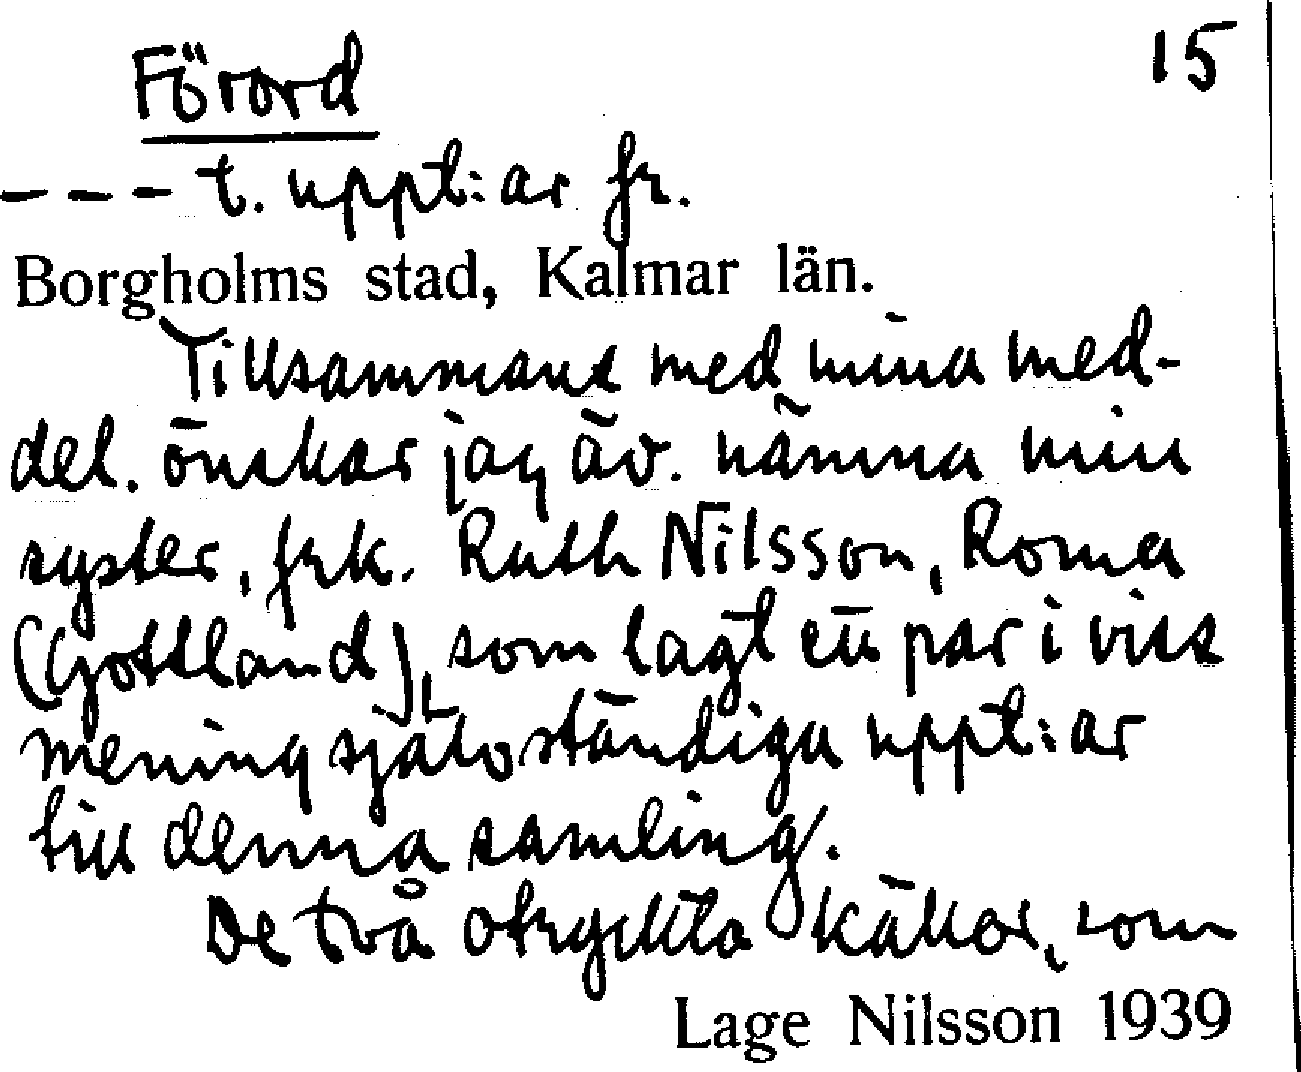 Förord 15
--- t. uppt:ar fr.
Borgholms stad, Kalmar län.
Tillsammans med mina med-
del. önskar jag äv. nämna min
syster, frk. Ruth Nilsson, Roma
(Gottland), som lagt en par i viss
mening självständiga uppt:ar
till denna samling.
De två otryckta källor, som
Lage Nilsson 1939